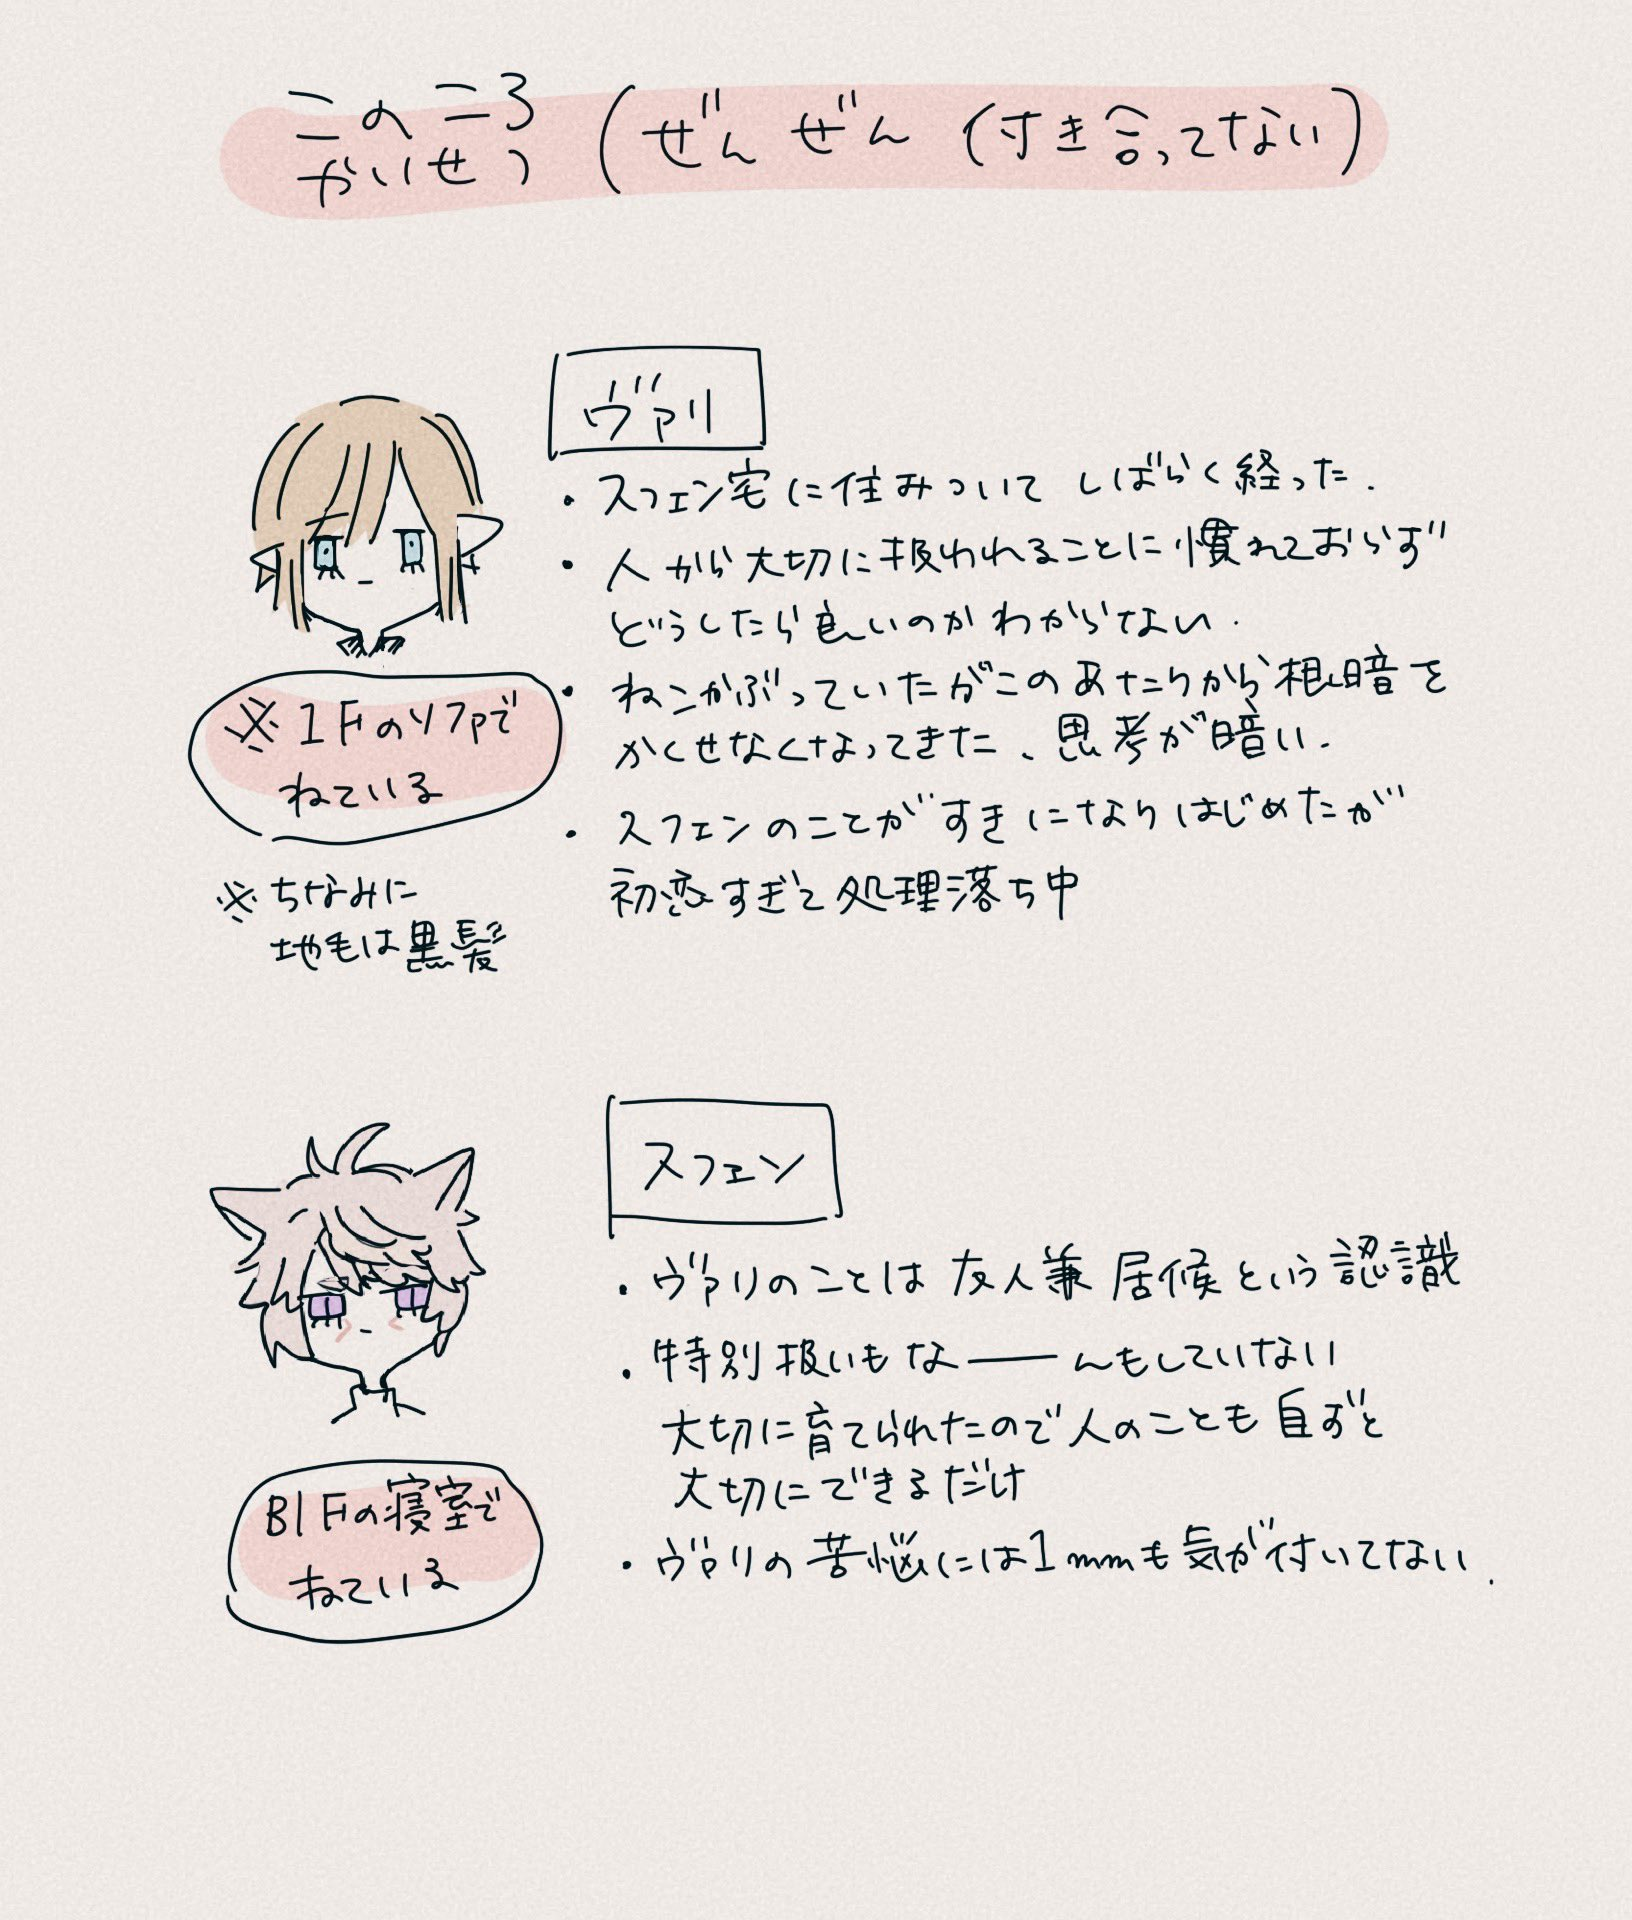 このころ
かいせつ
(ぜんぜん付き合ってない)
ヴァリ
・スフェン宅に住みついてしばらく経った.
・人から大切に扱われることに慣れておらず
どうしたら良いのかわからない.
・ねこかぶっていたがこのあたりから根暗を
かくせなくなってきた、思考が暗い.
・スフェンのことがすきになりはじめたが
初恋すぎて処理落ち中
※1Fのソファで
ねている
※ちなみに
地毛は黒髪
スフェン
・ヴァリのことは友人兼居候という認識
・特別扱いもなーーんもしていない
大切に育てられたので人のことも自ずと
大切にできるだけ
・ヴァリの苦悩には1mmも気が付いてない.
B1Fの寝室で
ねている